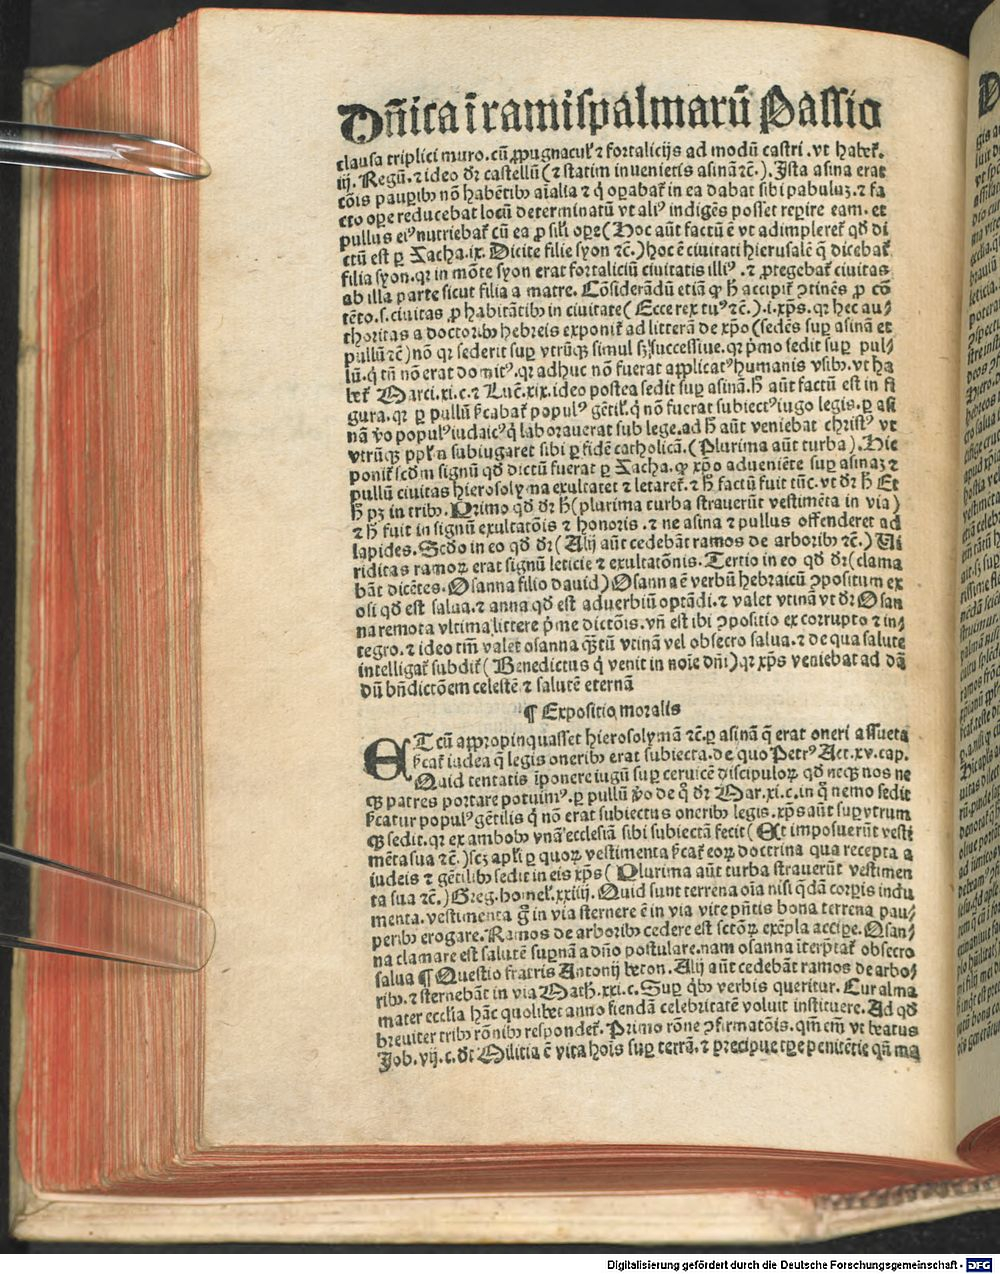 Dñica ĩ ramiſpalmarũ Paſſio
clauſa triplici muro. cũ ꝓpugnacul' ⁊ fortalicijs ad modũ caſtri. vt habet᷑.
iij. Regũ. ⁊ ideo dr̃ caſtellũ (⁊ ſtatim inuenietis aſinã ⁊c̃.). Iſta aſina erat
cõis pauꝑibꝯ nõ habẽtibꝯ aĩalia ⁊ q̇ oꝑabat᷑ in ea dabat ſibi pabuluꝫ. ⁊ fa
cto oꝑe reducebat ad locũ determinatũ vt aliꝰ indigẽs poſſet reꝑire eam. et
pullus eiꝰ nutriebat᷑ cũ ea ꝓ ſil'i oꝑe (Hoc aũt factũ ẽ vt adimpleret᷑ qđ di
ctũ eſt ꝑ Zacha. ix. Dicite filie ſyon ⁊c̃.) hoc ẽ ciuitati hieruſalẽ q̃ dicebat᷑
filia ſyon. qr in mõte ſyon erat fortaliciũ ciuitatis illiꝰ. ⁊ ꝓtegebat᷑ ciuitas
ab illa parte ſicut filia a matre. Cõſiderãdũ etiã ꝙ h̃ accipit᷑ ꝯtinẽs ꝓ cõ
tẽto. ſ. ciuitas ꝓ habitãtibꝯ in ciuitate (Ecce rex tuꝰ ⁊c̃.). i. xp̃s. qr hec au/
thoritas a doctoribꝯ hebreis exponit᷑ ad litterã de xp̃o (ſedẽs ſuꝑ aſinã et
pullũ ⁊c̃) nõ qr ſederit ſuꝑ vtrũqꝫ ſimul ſꝫ ſucceſſiue. qr p̃mo ſedit ſuꝑ pul/
lũ. q̇ tñ nõ erat domitꝰ. qr adhuc nõ fuerat applicatꝰ humanis vſibꝯ. vt ha
bet᷑ Marci. xi. c. ⁊ Luc̃. xix. ideo poſtea ſedit ſuꝑ aſinã. h̃ aũt factũ eſt in fi
gura. qr ꝑ pullũ ſ̃cabat᷑ populꝰ gẽtil'. q̇ nõ fuerat ſubiectꝰ iugo legis. ꝑ aſi
nã ṽo populꝰ iudaicꝰ q̇ laborauerat ſub lege. ad h̃ aũt veniebat chriſtꝰ vt
vtrũqꝫ ppl'm ſubiugaret ſibi ꝑ fidẽ catholicã. (Plurima aũt turba). Hic
ponit᷑ ſcđm ſignũ qđ dictũ fuerat ꝑ Zacha. ꝙ xp̃o adueniẽte ſuꝑ aſinaꝫ ⁊
pullũ ciuitas hieroſolyma exultaret ⁊ letaret᷑. ⁊ h̃ factũ fuit tũc. vt dr̃ h̃ Et
h̃ pꝫ in tribꝯ. Primo qđ dr̃ h̃ (plurima turba ſtrauerũt veſtimẽta in via)
⁊ h̃ fuit in ſignũ exultatõis ⁊ honoris. ⁊ ne aſina ⁊ pullus offenderet ad
lapides. Scđo in eo qđ dr̃ (Alij aũt cedebãt ramos de arboribꝯ ⁊c̃.) Ui
riditas ramoꝝ erat ſignũ leticie ⁊ exultatõnis. Tertio in eo qđ dr̃ (clama
bãt dicẽtes. Oſanna filio dauid) Oſanna ẽ verbũ hebraicũ ꝯpoſitum ex
oſi qđ eſt ſalua. ⁊ anna qđ eſt aduerbiũ optãdi. ⁊ valet vtinã vt dr̃ Oſan
na remota vltima littere p̃me dictõis. vñ eſt ibi ꝯpoſitio ex corrupto ⁊ in/
tegro. ⁊ ideo tm̃ valet oſanna qꝫtũ vtinã vel obſecro ſalua. ⁊ de qua ſalute
intelligat᷑ ſubdit᷑ (Benedictus q̇ venit in noĩe dñi). qr xp̃s veniebat ad dã
dũ bñdictõem celeſtẽ ⁊ ſalutẽ eternã
¶ Expoſitio moralis
ET cũ appropinquaſſet hieroſolymã ⁊c̃. ꝑ aſinã q̃ erat oneri aſſueta
ſ̃cat᷑ iudea q̃ legis oneribꝯ erat ſubiecta. de quo Petrꝰ Act. xv. cap.
Quid tentatis ĩponere iugũ ſuꝑ ceruicẽ diſcipuloꝝ qđ neqꝫ nos ne
qꝫ patres portare potuimꝰ. ꝑ pullũ ṽo de q̊ dr̃ Mar. xi. c. in q̊ nemo ſedit
ſ̃catur populꝰ gẽtilis q̇ nõ erat ſubiectus oneribꝯ legis. xp̃s aũt ſuꝑ vtrum
qꝫ ſedit. qr ex ambobꝯ vnã eccleſiã ſibi ſubiectã fecit (Et impoſuerũt veſti
mẽta ſua ⁊c̃.) ſcꝫ apl'i ꝑ quoꝝ veſtimenta ſ̃cat᷑ eoꝝ doctrina qua recepta a
iudeis ⁊ gẽtilibꝯ ſedit in eis xp̃s (Plurima aũt turba ſtrauerũt veſtimen
ta ſua ⁊c̃.) Greg. homel'. xxiiij. Quid ſunt terrena oĩa niſi q̃dã corꝑis indu
menta. veſtimenta g̊ in via ſternere ẽ in via vite p̃ntis bona terrena pau/
peribꝯ erogare. Ramos de arboribꝯ cedere eſt ſctõꝝ exẽpla accipe. Oſan/
na clamare eſt ſalutẽ ſupnã a dño poſtulare. nam oſanna iterp̃tat᷑ obſecro
ſalua ¶ Queſtio fratris Antonij beton. Alij aũt cedebãt ramos de arbo/
ribꝯ. ⁊ ſternebãt in via Math. xxi. c. Suꝑ q̇bꝯ verbis queritur. Cur alma
mater eccl'ia hãc quolibet anno fiendã celebritatẽ voluit inſtituere. Ad qđ
breuiter tribꝯ rõnibꝯ reſpondet᷑. Primo rõne ꝯfirmatõis. qm̃ em̃ vt beatus
Job. vij. c. dt Militia ẽ vita hoĩs ſuꝑ terrã. ⁊ precipue tꝑe penitẽtie qñ ma
Digitalisierung gefördert durch die Deutsche Forschungsgemeinschaft - DFG